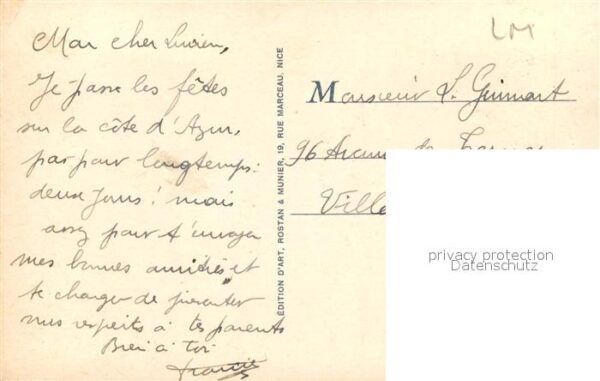 LM
Mon cher Lucien,
Je passe les fêtes
sur la côte d'Azur,
pas pour longtemps :
deux jours ! mais
assez pour t'envoyer
mes bonnes amitiés et
te charger de présenter
mes respects à tes parents
Bien à toi
Francis
ÉDITION D'ART, ROSTAN & MUNIER, 19, RUE MARCEAU, NICE
Monsieur L. Guimart
96 Avenue de
Ville
privacy protection
Datenschutz